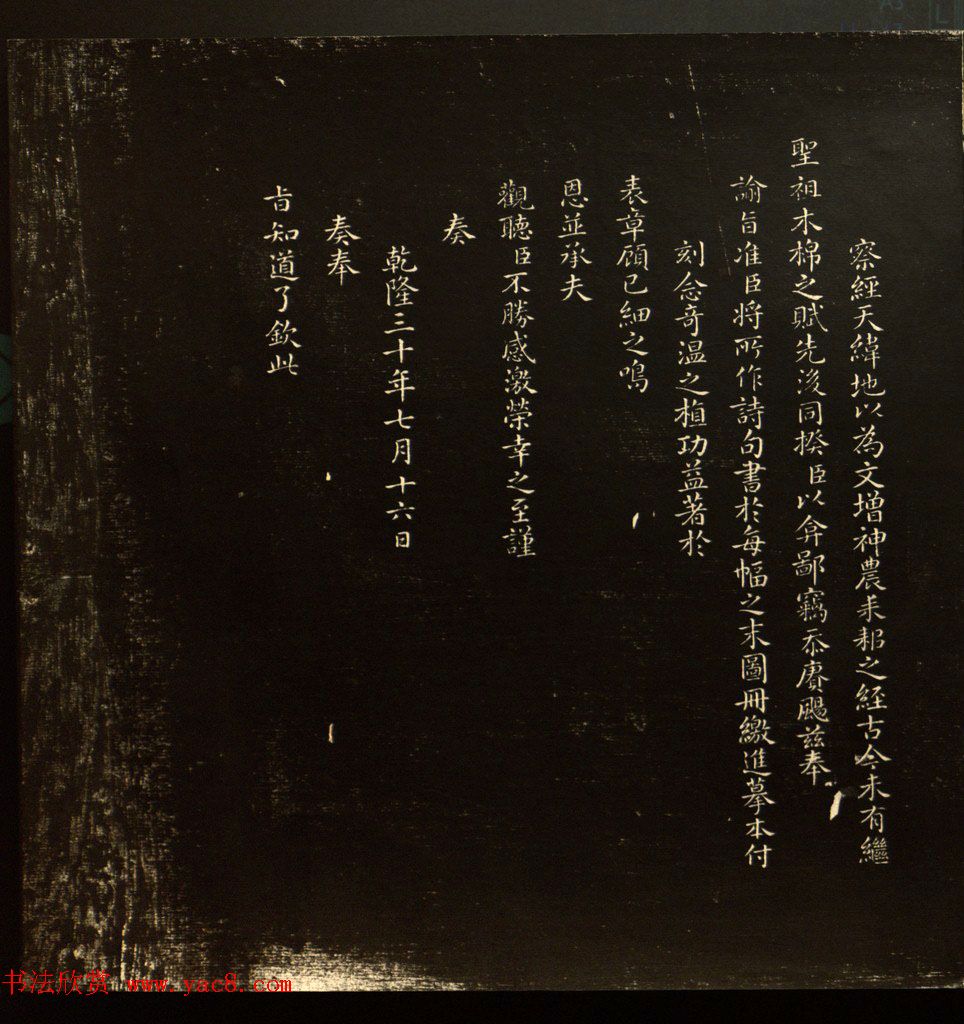 察經天緯地以為文增神農耒耜之經古今未有繼
聖祖木棉之賦先後同揆臣以弇鄙竊忝賡颺茲奉
諭旨准臣將所作詩句書於每幅之末圖冊繳進摹本付
刻念奇溫之植功益著於
表章顧已細之鳴
恩並承夫
觀聽臣不勝感激榮幸之至謹
奏
乾隆三十年七月十六日
奏奉
旨知道了欽此
书法欣赏 www.yac8.com